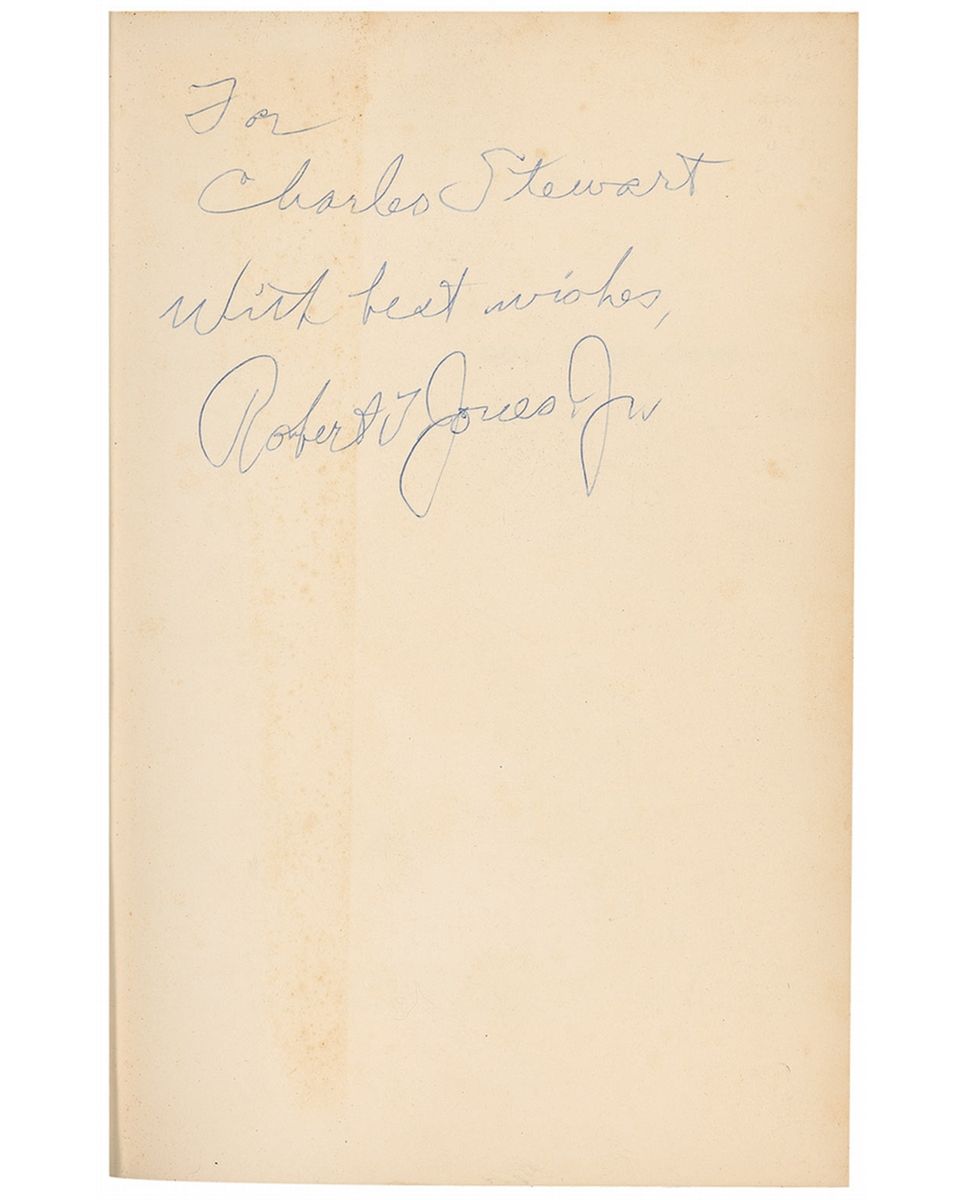 For
Charles Stewart
With best wishes,
Robert T Jones Jr